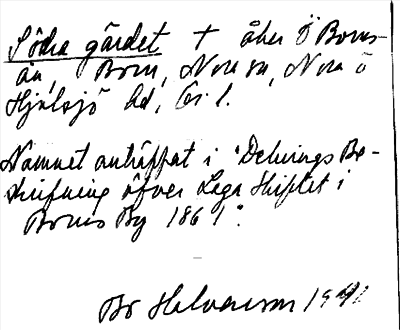 Södra gärdet + åker Ö Borns-
ån, Born, Nora sn, Nora o
Hjulsjö hd,
Namnet anträffat i "Delnings Be-
skrifning öfver Laga Skiftet i
Borns By 1861".
Bo